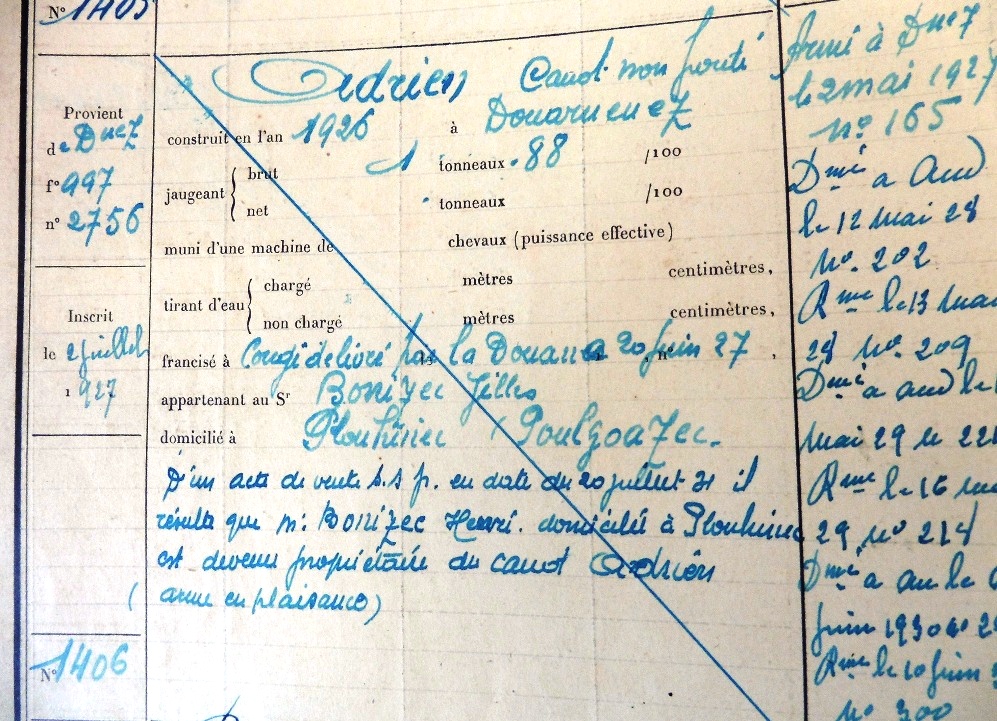 N° 1405
Provient
de Dnez
f° 997
n° 2756
Inscrit
le 2 juillet
1927
N° 1406
Adrien Canot non ponté
construit en l'an 1926 à Douarnenez
jaugeant { brut 1 tonneaux . 88 /100
net tonneaux /100
muni d'une machine de chevaux (puissance effective)
tirant d'eau { chargé mètres centimètres,
non chargé mètres centimètres,
francisé à Congé délivré par la Douane 20 juin 27,
appartenant au Sr Bonizec Gilles
domicilié à Plouhinec (Poulgoazec.
D'un acte de vente s.s p. en date du 20 juillet 31 il
résulte que mr Bonizec Henri. domicilié à Plouhinec
est devenu propriétaire du canot Adrien
(armé en plaisance)
Armé à Dnez
le 2 mai 1927
n° 165
Dmé a Aud
le 12 Mai 28
N°. 202
Rme le 13 mai
28 N°. 209
Dmé a aud le
Mai 29 n 22
Rme le 16 mai
29 n° 214
Dmé a au le
juin 1930 n° 2
Rme le 10 juin 3
N° 300